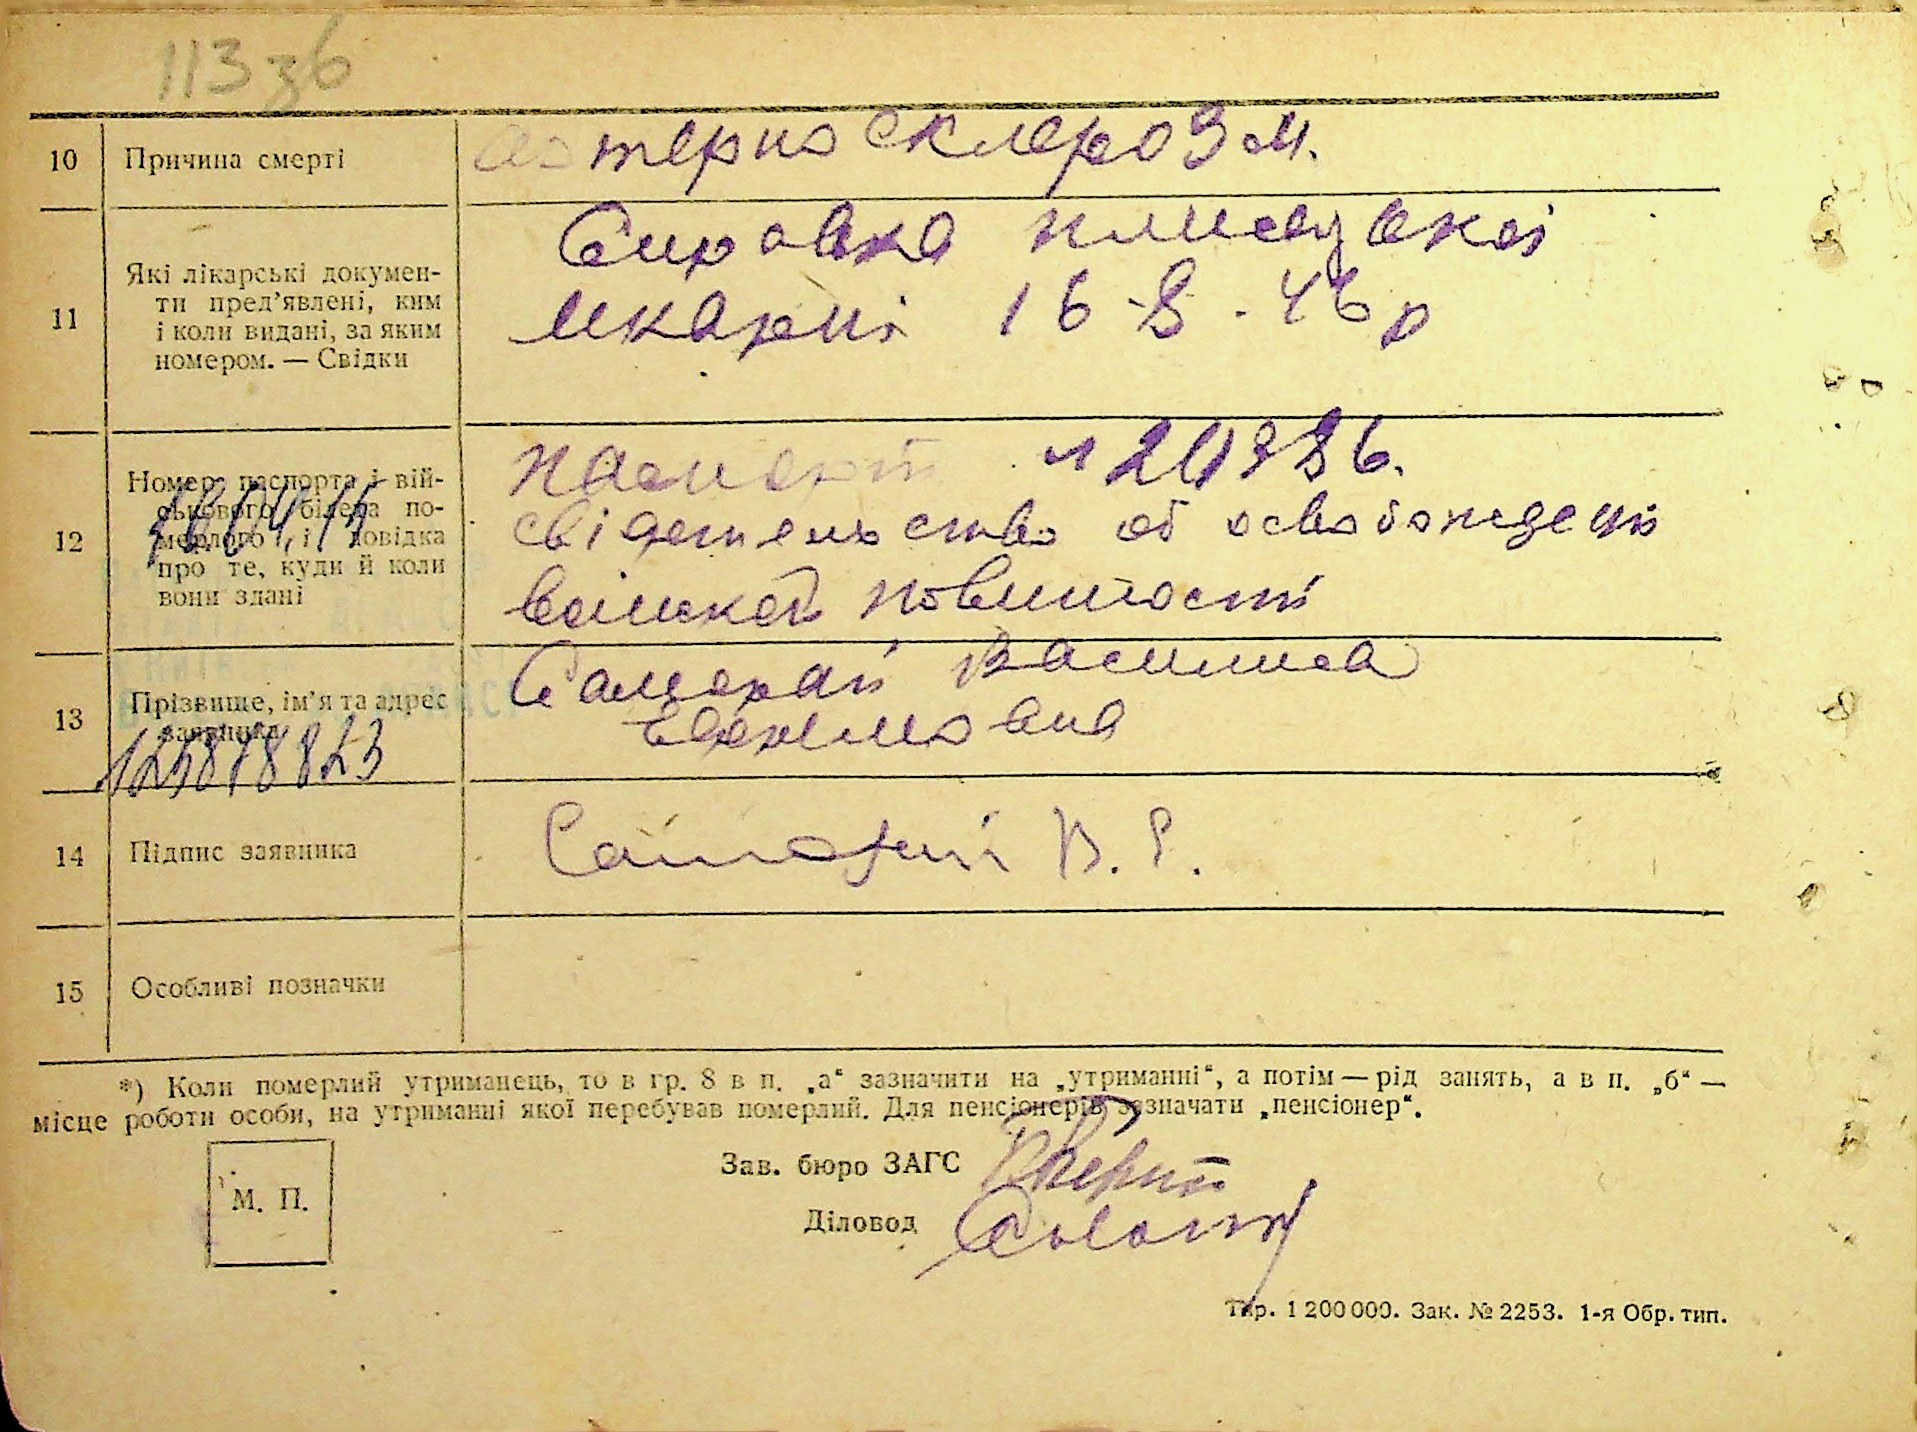 113 зб
10 Причина смерті
артерио склероз м.
11 Які лікарські докумен-
ти пред'явлені, ким
і коли видані, за яким
номером. — Свідки
Справка
лікарні 16-8-46 р
12 Номер паспорта і вій-
ськового білета по-
мерлого, і довідка
про те, куди й коли
вони здані
паспорт
свідетельство об освобождении
воінской повиности
13 Прізвище, ім'я та адрес
заявника
Василиса
14 Підпис заявника
В. Е.
15 Особливі позначки
*) Коли померлий утриманець, то в гр. 8 в п. „а“ зазначити на „утриманні“, а потім — рід занять, а в п. „б“ —
місце роботи особи, на утриманні якої перебував померлий. Для пенсіонерів зазначати „пенсіонер“.
М. П.
Зав. бюро ЗАГС
Діловод
Тир. 1 200 000. Зак. № 2253. 1-я Обр. тип.